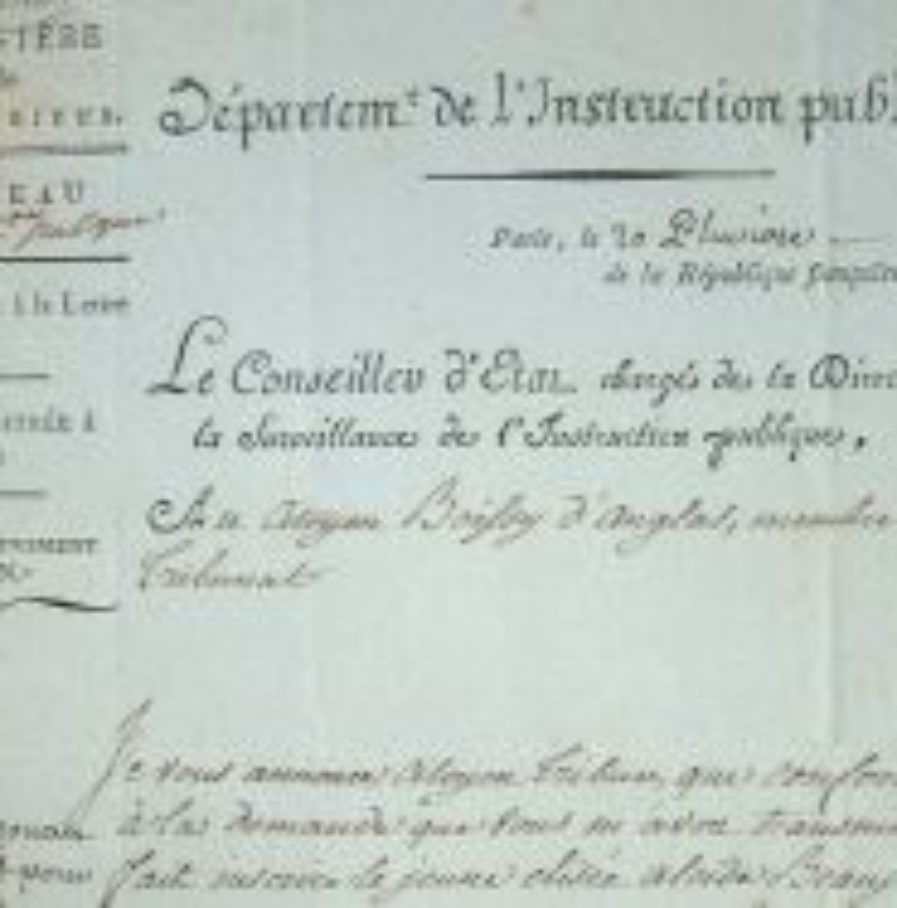 STÈRE
RIEUR.
EAU
à la Lettre
Départem.t de l'Instruction publ
Paris, le 20 Pluviose
de la République française
Le Conseiller d'Etat chargé de la Direc
la Surveillance de l'Instruction publique,
Au citoyen Boissy d'anglas, membre
Tribunat
Je vous annonce Citoyen Tribun, que confor
à la demande que vous m'avez transmi
fait inscrire le jeune